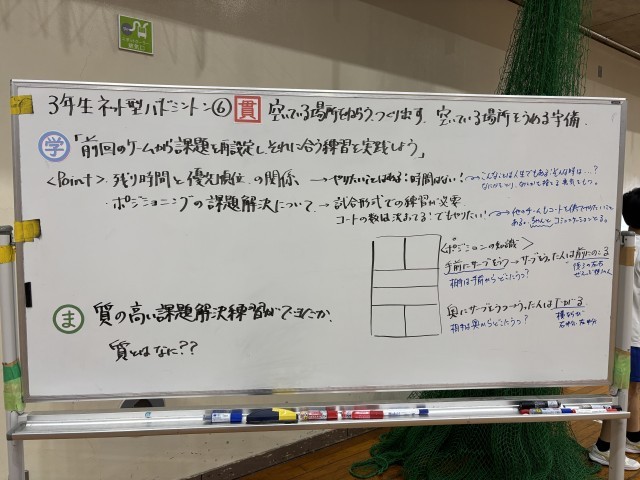 3年生ネット型バドミントン⑥ 貫 空いている場所をねらう、つくり出す 空いている場所をうめる守備
学「前回のゲームから課題を再設定し、それに合う練習を実践しよう」
<Point>・残り時間と優先順位の関係、→やりたいことはある！時間はない！
・ポジショニングの課題解決について→試合形式での練習が必要
コートの数は決まってる！でもやりたい！→他のチームもコートを使ってやりたいことも
ある。コミュニケーションとる。
<ポジションの知識>
手前にサーブをうつ→サーブをうった人は前にのこる
相手は手前からどこにうつ？
奥にサーブをうつ→うった人は下がる
相手は奥からどこにうつ？
横ならび
ま 質の高い課題解決練習ができたか、
質とはなに??